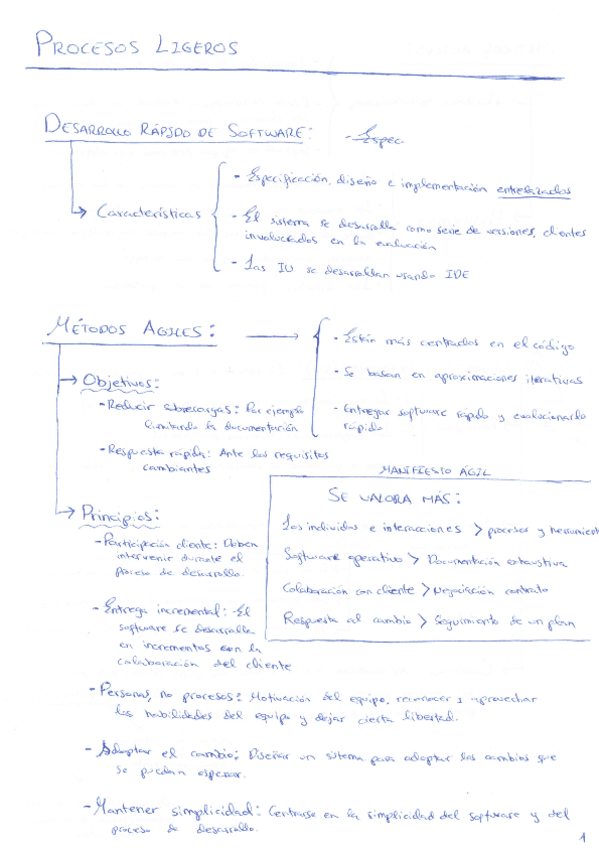 PROCESOS LIGEROS
DESARROLLO RÁPIDO DE SOFTWARE:
- Espec
Características
- Especificación, diseño e implementación entrelazados
- El sistema se desarrolla como serie de versiones, clientes
involucrados en la evaluación
- Las IU se desarrollan usando IDE
MÉTODOS AGILES:
- Están más centrados en el código
- Se basan en aproximaciones iterativas
- Entregar software rápido y evolucionarlo
rápido
Objetivos:
- Reducir sobrecargas: Por ejemplo
limitando la documentación
- Respuesta rápida: Ante los requisitos
cambiantes
MANIFIESTO ÁGIL
SE VALORA MÁS:
Los individuos e interacciones > procesos y herramient
Software operativo > Documentación exhaustiva
Colaboración con cliente > Negociación contrato
Respuesta al cambio > Seguimiento de un plan
Principios:
- Participación cliente: Deben
intervenir durante el
proceso de desarrollo.
- Entrega incremental: El
software se desarrolla
en incrementos con la
colaboración del cliente
- Personas, no procesos: Motivación del equipo, reconocer y aprovechar
las habilidades del equipo y dejar cierta libertad.
- Adoptar el cambio: Diseñar un sistema para adoptar los cambios que
se puedan esperar.
- Mantener simplicidad: Centrarse en la simplicidad del software y del
proceso de desarrollo.
1